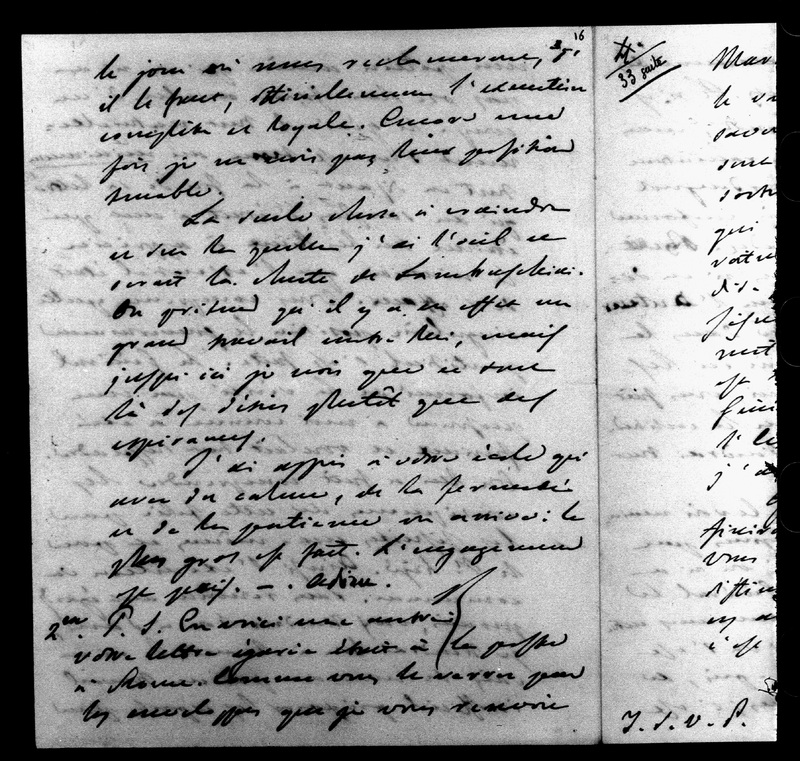 16
le jour où nous reclamerons, s'
il le faut, officiellement l'execution
complète et loyale. Encore une
fois je ne crois pas leur position
tenable.
La seule chose à craindre
et sur la quelle j'ai l'oeil ce
serait la chute de Lambruschini.
On prétend qu'il y a en effet un
grand travail contre lui, mais
jusqu'ici je crois que ce sont
là des désirs plutôt que des
espérances.
J'ai appris à votre école qu'
avec du calme, de la fermeté
et de la patience on arrive: le
plus gros est fait. L'engagement
est pris. — . Adieu.
2em P. S. En voici une autre:
votre lettre égarée était à la poste
à Rome. Comme vous le verrez par
les enveloppes que je vous renvoie
33 suite
le
qui
est
j'
vous
c'est
T. S. V. P.